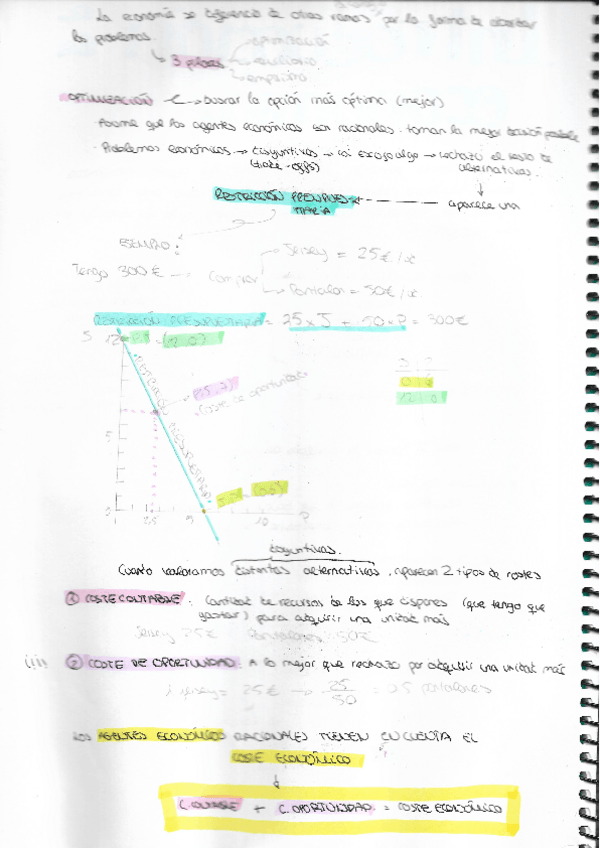 La economía se diferencia de otras ramas por la forma de abordar
los problemas.
optimización
3 pilares equilibrio
empirismo
OPTIMIZACIÓN buscar la opción más óptima (mejor)
Asume que los agentes económicos son racionales. toman la mejor decisión posible
Problemas económicos → disyuntivas → si escojo algo → rechazo el resto de
(trade-offs) alternativas.
RESTRICCIÓN PRESUPUES- aparece una
TARIA
EJEMPLO:
Jersey = 25€/
Tengo 300€ Comprar
Pantalon = 50€/
RESTRICCIÓN PRESUPUESTARIA = 25 x J + 50 x P = 300€
12
RESTRICCIÓN PRESUPUESTARIA
Coste de oportunidad
5
12 0
0 10 P
disyuntivas.
Cuando valoramos distintas alternativas, aparecen 2 tipos de costes
① COSTE CONTABLE: Cantidad de recursos de los que dispones (que tengo que
gastar) para adquirir una unidad más
Jersey 25€ Pantalones: 50€
(ii) ② COSTE DE OPORTUNIDAD: A lo mejor que rechazo por adquirir una unidad más
1 jersey = 25€ → 25/50 = 0'5 pantalones
LOS AGENTES ECONÓMICOS RACIONALES TIENEN EN CUENTA EL
COSTE ECONÓMICO
C. CONTABLE + C. OPORTUNIDAD = COSTE ECONÓMICO